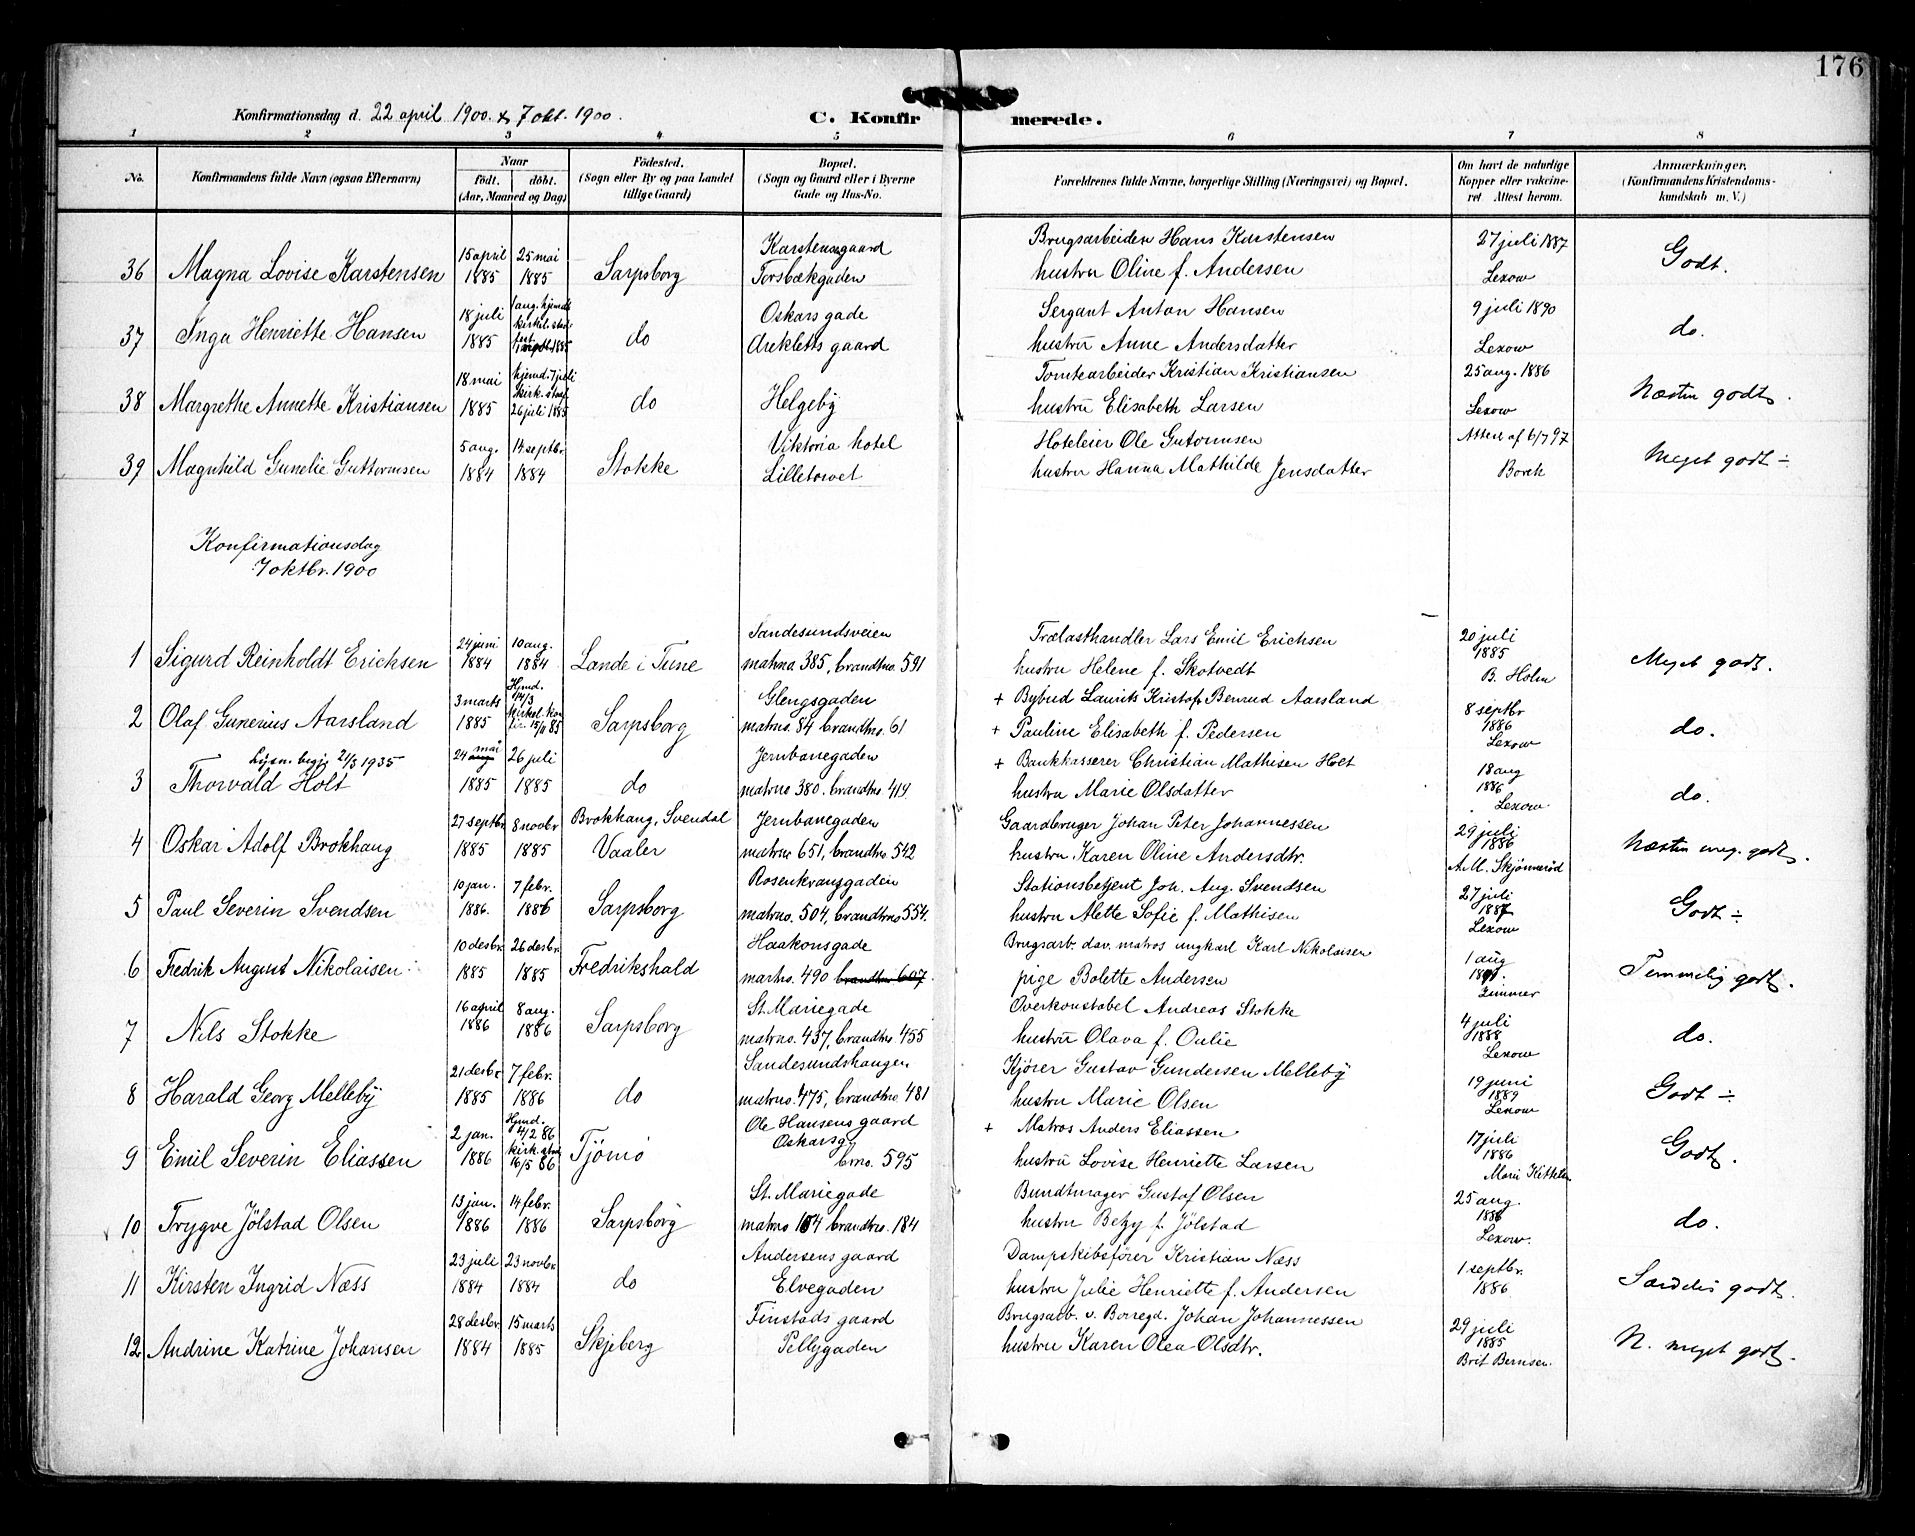 176
Konfirmationsdag d. 22 april 1900 & 7 okt. 1900.
C. Konfirmerede.
1 2 3 4 5 6 7 8
No.
Konfirmandens fulde Navn (ogsaa Efternavn)
Naar
födt. döbt.
(Aar, Maaned og Dag)
Födested.
(Sogn eller By og paa Landet
tillige Gaard)
Bopæl.
(Sogn og Gaard eller i Byerne
Gade og Hus-No.
Forældrenes fulde Navne, borgerlige Stilling (Næringsvei) og Bopæl.
Om havt de naturlige
Kopper eller vakcine-
ret. Attest herom.
Anmærkninger.
(Konfirmandens Kristendoms-
kundskab m. V.)
36 Magna Lovise Karstensen
15 april 1885
25 mai 1885
Sarpsborg
Karstensgaard
Torsbækgaden
Brugsarbeider Hans Karstensen
hustru Oline f. Andersen
27 juli 1887
Lexow
Godt.
37 Inga Henriette Hansen
18 juli 1885
do
Oskars gade
gaard
Sergant Anton Hansen
hustru Anne Andersdatter
9 juli 1890
Lexow
do.
38 Margrethe Annette Kristiansen
18 mai 1885
hjemd. 7 juli
kirk. stadf.
26 juli 1885
do
Helgeby
Tomtearbeider Kristian Kristiansen
hustru Elisabeth Larsen
25 aug. 1886
Lexow
Næsten godt.
39 Magnhild Gunelie Guttormsen
5 aug. 1884
14 septbr 1884
Stokke
Viktoria hotel
Lilletorvet
Hoteleier Ole Gutormsen
hustru Hanna Mathilde Jensdatter
Attest af 6/7 97
Borch
Meget godt ÷
Konfirmationsdag
7 oktbr. 1900
1 Sigurd Reinholdt Erichsen
24 juni 1884
10 aug. 1884
Lande i Tune
Sandesundsveien
matrno 385, brandtno. 591
Trælasthandler Lars Emil Erichsen
hustru Helene f. Skotvedt
20 juli
1885
B. Holm
Meget godt.
2 Olaf Gunerius Aarsland
3 marts 1885
Hjmd. 14/3
15/11 85
Sarpsborg
Glengsgaden
matrno. 84 brandtno. 61
+ Bybud Laurits Kristofr Benrud Aarsland
+ Pauline Elisabeth f. Pedersen
8 septbr
1886
Lexow
do.
Lysn. begj. 21/3 1935
3 Thorvald Holt
24 mai 1885
26 juli 1885
do
Jernbanegaden
matrno 380. brandtno 414
+ Bankkasserer Christian Mathisen Holt
hustru Marie Olsdatter
18 aug
1886
Lexow.
do.
4 Oskar Adolf Brokhaug
27 septbr 1885
8 novbr 1885
Brokhaug, Svendal
Vaaler
Jernbanegaden
matrno 651, brandtno. 542
Gaardbruger Johan Peter Johannessen
hustru Karen Oline Andersdtr.
29 juli
1886
A. M. Skjönnerød
Næsten meg. godt.
5 Paul Severin Svendsen
10 jan. 1886.
7 febr. 1886
Sarpsborg
Rosenkransgaden
matrno. 504, brandtno 554.
Stationsbetjent Joh. Aug. Svendsen
hustru Alette Sofie f. Mathisen
27 juli
1887
Lexow
Godt ÷
6 Fredrik August Nikolaisen
10 desbr. 1885
26 desbr. 1885
Fredrikshald
Haakonsgade
matrno. 490 brandtno 607.
Brugsarb. dav. matros ungkarl Karl Nikolaisen
pige Bolette Andersen
1 aug
Zimmer
Temmelig godt.
7 Nils Stokke
16 april 1886
8 aug. 1886
Sarpsborg
St. Mariegade
matrno. 437, brandtno 455
Overkonstabel Andreas Stokke
hustru Olava f. Oulie
4 juli
1888
Lexow
do.
8 Harald Georg Melleby
21 desbr 1885
7 febr. 1886
do
Sandesundshaugen
matrno. 475, brandtno 481
Kjører Gustav Gundersen Melleby
hustru Marie Olsen
19 juni
1889
Lexow
Godt ÷
9 Emil Severin Eliassen
2 jan. 1886
Hjmd.
4/2 86
16/5 86
Tjömö
Ole Hansens gaard
Oskarsg.
brno. 595
+ Matros Anders Eliassen
hustru Lovise Henriette Larsen
17 juli
1886
Mari Kittelsen
Godt.
10 Trygve Jölstad Olsen
13 jan. 1886
14 febr. 1886
Sarpsborg
St. Mariegade
matrno 154 brandtno. 184
Bundtmager Gustaf Olsen
hustru Betzy f. Jölstad
25 aug.
1886
Lexow.
do.
11 Kirsten Ingrid Næss
23 juli 1884
23 novbr. 1884
do
Andersens gaard
Elvegaden
Dampskibsfører Kristian Næss
hustru Julie Henriette f. Andersen
1 septbr.
1886
Særdeles godt.
12 Andrine Katrine Johansen
28 desbr. 1884
15 marts 1885
Skjeberg
Finstads gaard
Pellygaden
Brugsarb. v. Borregd. Johan Johannessen
hustru Karen Olea Olsdtr.
29 juli
1885
Brit Bernsen.
N. meget godt.